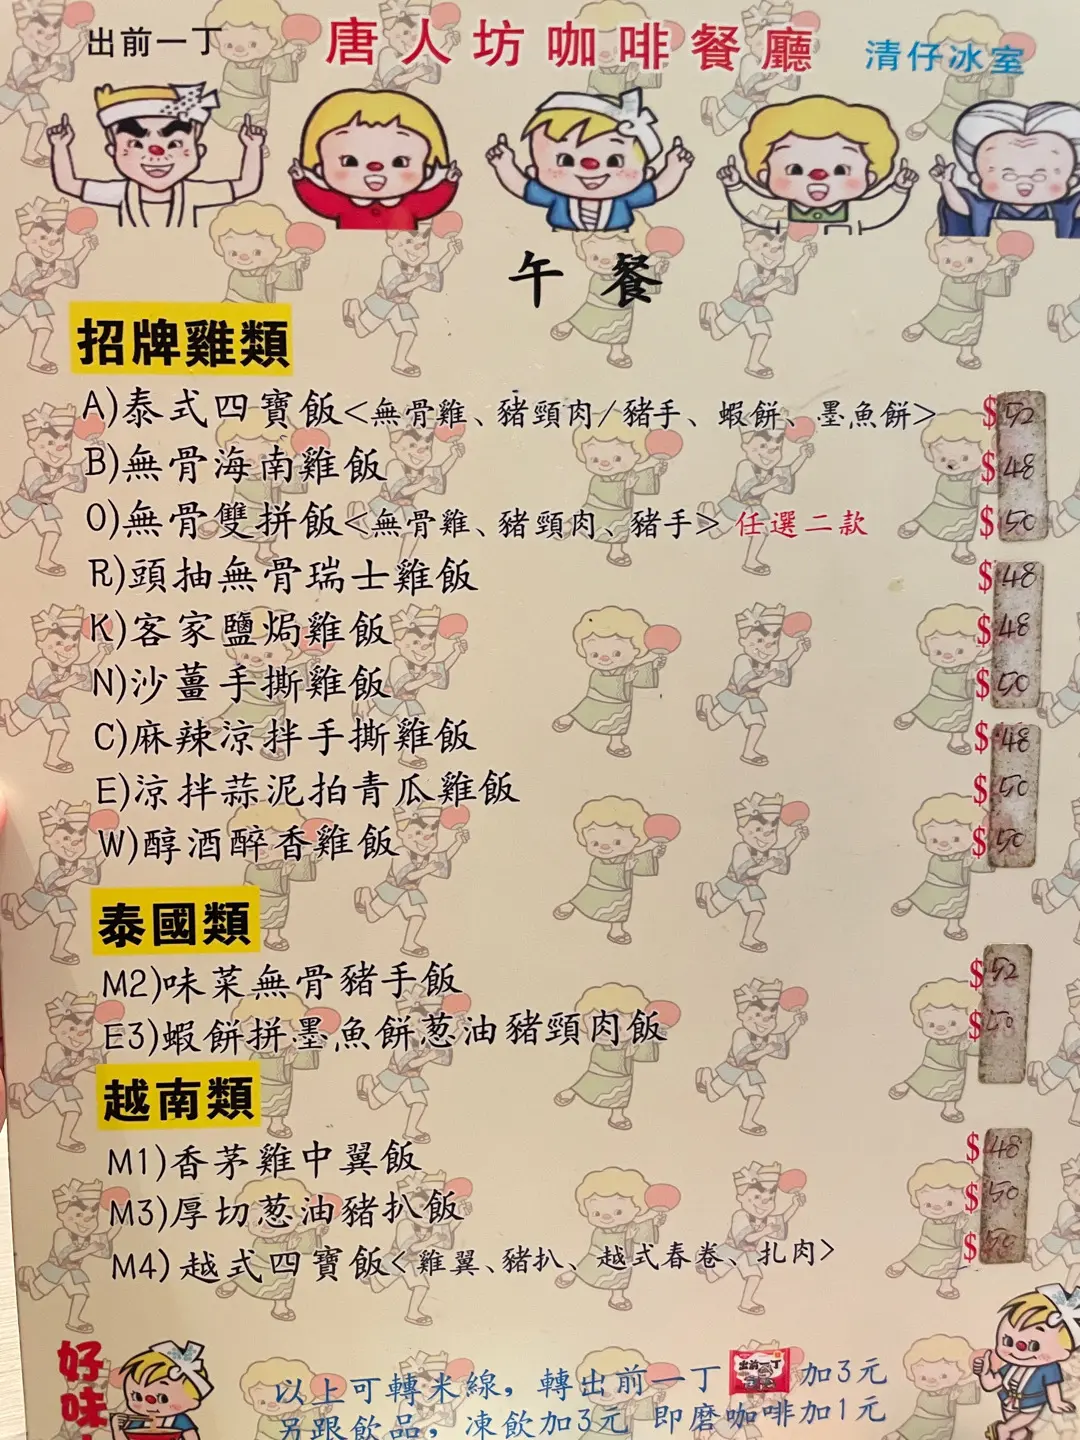 出前一丁 唐人坊咖啡餐廳 清仔冰室
午餐
招牌雞類
A)泰式四寶飯<無骨雞、豬頸肉/豬手、蝦餅、墨魚餅> $52
B)無骨海南雞飯 $48
O)無骨雙拼飯<無骨雞、豬頸肉、豬手> 任選二款 $50
R)頭抽無骨瑞士雞飯 $48
K)客家鹽焗雞飯 $48
N)沙薑手撕雞飯 $50
C)麻辣涼拌手撕雞飯 $48
E)涼拌蒜泥拍青瓜雞飯 $50
W)醇酒醉香雞飯 $50
泰國類
M2)味菜無骨豬手飯 $52
E3)蝦餅拼墨魚餅葱油豬頸肉飯 $50
越南類
M1)香茅雞中翼飯 $48
M3)厚切葱油豬扒飯 $50
M4)越式四寶飯<雞翼、豬扒、越式春卷、扎肉> $
好味
以上可轉米線，轉出前一丁 出前一丁 加3元
另跟飲品，凍飲加3元 即磨咖啡加1元